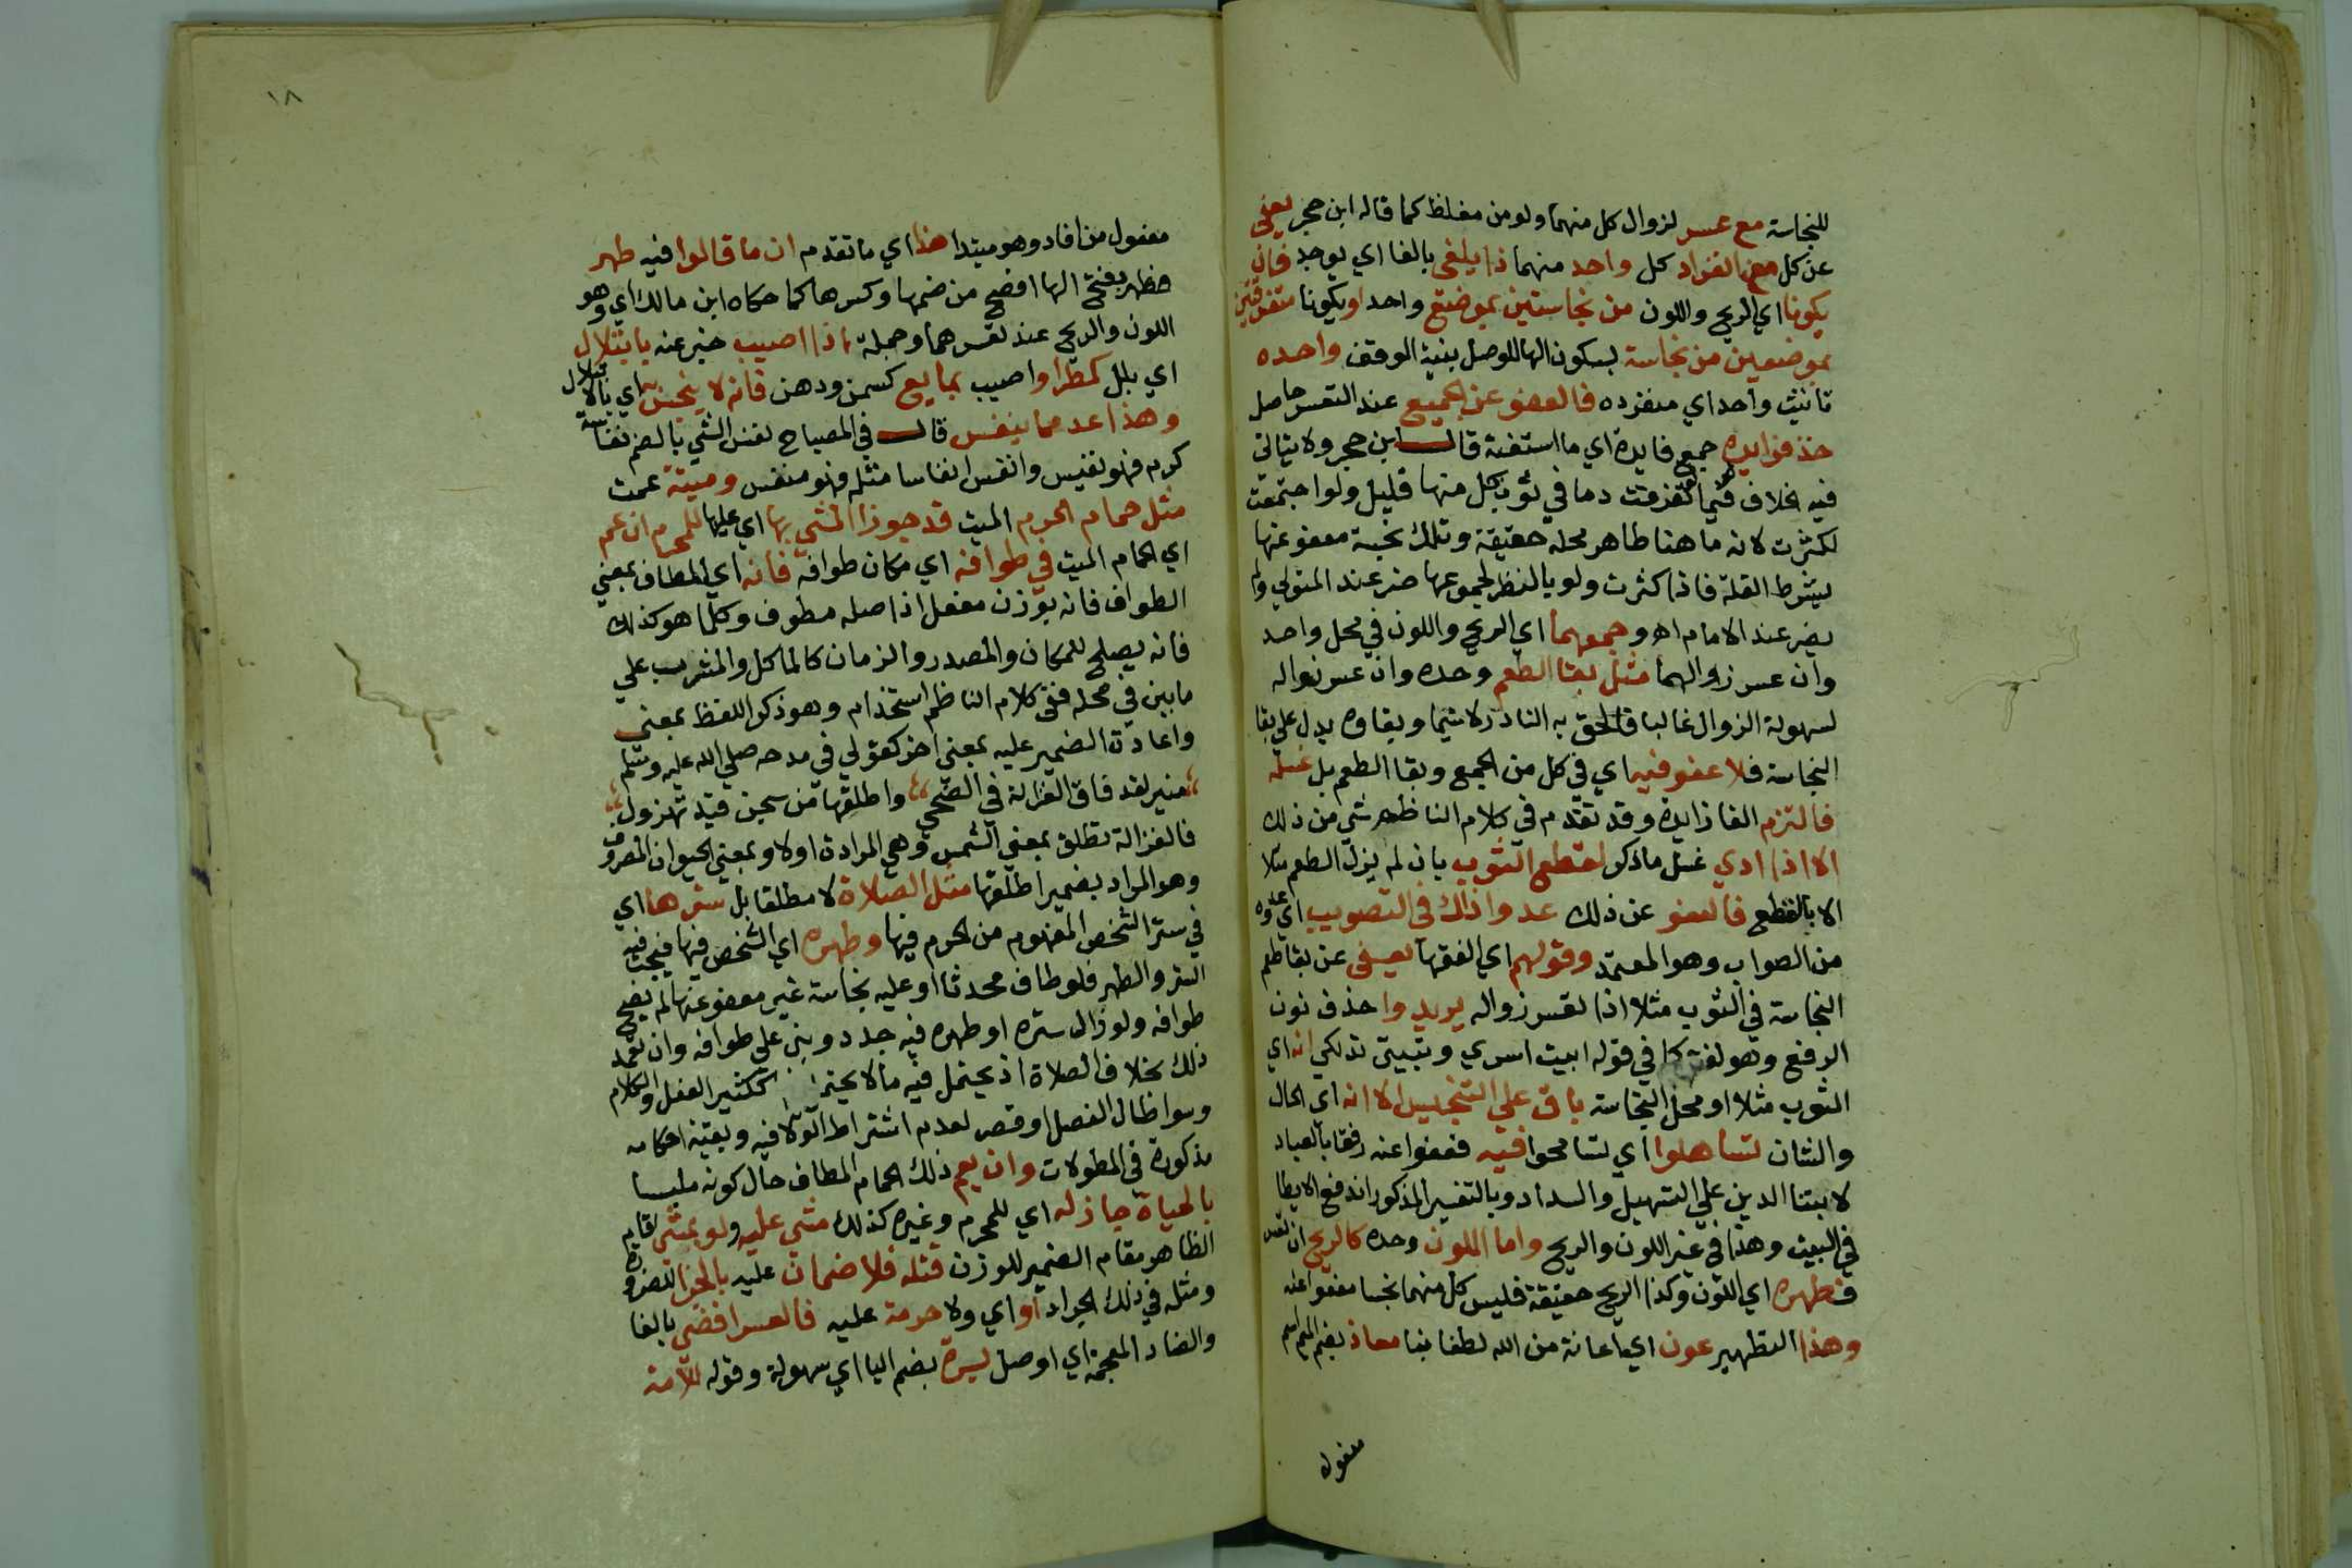 للنجاسة مع عسر لزوال كل منهما ولو من مغلظ كما قاله ابن حجر يعفي
عن كل مع انفراد كل واحد منهما ذا يلفي بالفا اي يوجد فان
يكونا اي الريح واللون من نجاستين بموضع واحد او يكونا متفرقين
بموضعين من نجاسة بسكون الها للوصل بنية الوقف واحده
تانيث واحد اي منفرده فالعفو عن الجميع عند التعسر حاصل
خذ فوايده جمع فايدة اي ما استفته قال ابن حجر ولا يتاتى
فيه الخلاف فيما لو تفرقت دما في ثوب كل منها قليل ولو اجتمعت
لكثرت لانه ما هنا طاهر محله حقيقة وتلك نجسة معفو عنها
بشرط القلة فاذا كثرت ولو بالنظر لمجموعها ضر عند المتولي ولم
يضر عند الامام اه وجمعهما اي الريح واللون في محل واحد
وان عسر زوالهما مثل بقا الطعم وحده وان عسر زواله
لسهولة الزوال غالبا فالحق به النادر لا سيما وبقاوه يدل على بقا
النجاسة فلا عفو فيه اي في كل من الجميع وبقا الطعم بل غسله
فالتزم الفا زايدة وقد تقدم في كلام الناظم شي من ذلك
الا اذا ادي غسل ما ذكر لقطع الثوب بان لم يزل الطعم مثلا
الا بالقطع فالعفو عن ذلك عدوا ذاك في التصويب اي عدوه
من الصواب وهو المعتمد وقولهم اي الفقها يعفى عن بقا طعم
النجاسة في الثوب مثلا اذا تعسر زواله يريدوا حذف نون
الرفع وهو لغة كما في قوله ابيت اسري وتبيتي تدلكي انه اي
الثوب مثلا او محل النجاسة باق علي التنجيس الا انه اي الحال
والشان تساهلوا اي تسامحوا فيه فعفوا عنه رفقا بالعباد
لابتنا الدين علي التسهيل والسداد وبالتفسير المذكور اندفع الايطا
في البيت وهذا في غير اللون والريح واما اللون وحده كالريح ان تعسر
فطهره اي اللون وكذا الريح حقيقة فليس كل منهما نجسا معفوا عنه
وهذا التطهير عون اي اعانة من الله لطفا بنا معاذ بضم الميم اسم
مفعول
١٨
مفعول من افاد وهو مبتدا هذا اي ما تقدم ان ما قالوا فيه طهر
فطهر بفتح الها افصح من ضمها وكسرها كما حكاه ابن مالك اي وهو
اللون والريح عند تعسرهما وجملة اذا اصيب خبر عنه بابتلال
اي بلل كمطر او اصيب بمايع كسمن ودهن فانه لا ينجس اي بالابتلال
وهذا عد مما ينفس قال في المصباح نفس الشي بالضم نفاسة
كرم فهو نفيس وانفس انفاسا مثله فهو منفس وميتة عمت
مثل حمام الحرم الميت قد جوزا المشي بها اي عليها للمحرم ان عم
اي الحمام الميت في طوافه اي مكان طوافه فانه اي المطاف بمعني
الطواف فانه بوزن مفعل اذ اصله مطوف وكلما هو كذلك
فانه يصلح للمكان والمصدر والزمان كالماكل والمشرب علي
ما بين في محله ففي كلام الناظم استخدام وهو ذكر اللفظ بمعني
واعادة الضمير عليه بمعني اخر كقولي في مدحه صلي الله عليه وسلم
منير لقد فاق الغزالة في الضحي واطلقها من سجن قيد تهزول
فالغزالة تطلق بمعني الشمس وهي المرادة اولا وبمعني الحيوان المعروف
وهو المراد بضمير اطلقها مثل الصلاة لا مطلقا بل سترها اي
في ستر الشخص المفهوم من الحرم فيها وطهره اي الشخص فيها فيجب فيه
الستر والطهر فلو طاف محدثا او عليه نجاسة غير معفو عنها لم يصح
طوافه ولو زال ستره او طهره فيه جدد وبني علي طوافه وان تعمد
ذلك بخلاف الصلاة اذ يحتمل فيه ما لا يحتمل كثير الفعل والكلام
وسوا طال الفصل او قصر لعدم اشتراط الولا فيه وبقية احكامه
مذكورة في المطولات وان يعم ذلك الحمام المطاف حال كونه ملبسا
بالحياة جاز له اي للمحرم وغيره كذلك مشي عليه ولو بمشي اقام
الظاهر مقام الضمير للوزن قتله فلا ضمان عليه بالجزا للضرورة
ومثله في ذلك الجراد او اي ولا حرمة عليه فالعسر افضي بالفا
والضاد المعجمة اي اوصل ليسرة بضم اليا اي سهولة وقوله للامة